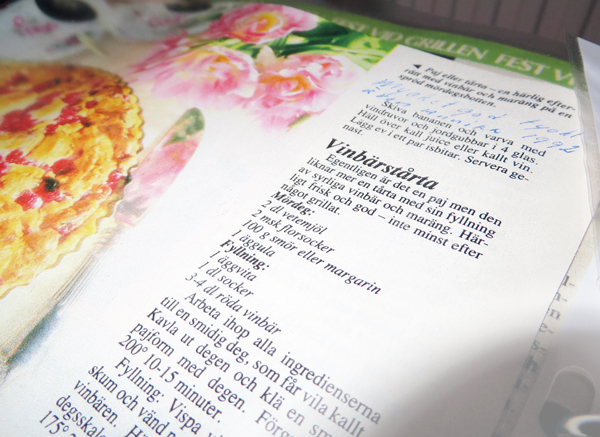 FEST VID GRILLEN FEST V
◄ Paj eller tårta – en härlig efter-
rätt med vinbär och maräng på en
spröd mördegsbotten.
1992
Skiva bananen och varva med
vindruvor och jordgubbar i 4 glas.
Häll över kall juice eller kallt vin.
Lägg ev i ett par isbitar. Servera ge-
nast.
Vinbärstårta
Egentligen är det en paj men den
liknar mer en tårta med sin fyllning
av syrliga vinbär och maräng. Här-
ligt frisk och god – inte minst efter
något grillat.
Mördeg:
2 dl vetemjöl
2 msk florsocker
100 g smör eller margarin
1 äggula
Fyllning:
1 äggvita
1 dl socker
3-4 dl röda vinbär
Arbeta ihop alla ingredienserna
till en smidig deg, som får vila kallt
Kavla ut degen och klä en sm
pajform med degen. Förg
200° 10-15 minuter.
Fyllning: Vispa v
skum och vänd
vinbären. H
degsskale
175°